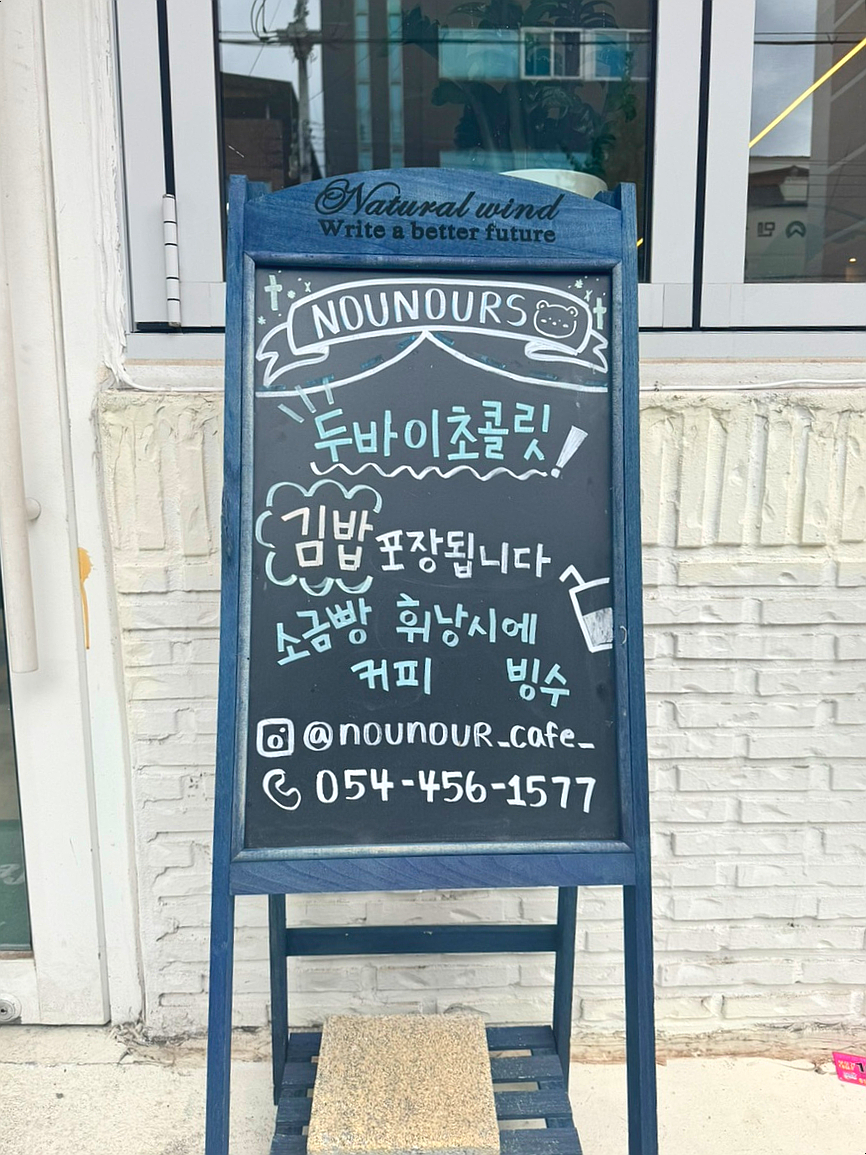 Natural wind
Write a better future
NOUNOURS
두바이초콜릿!
김밥 포장됩니다
소금빵 휘낭시에
커피 빙수
@nounour_cafe_
054-456-1577